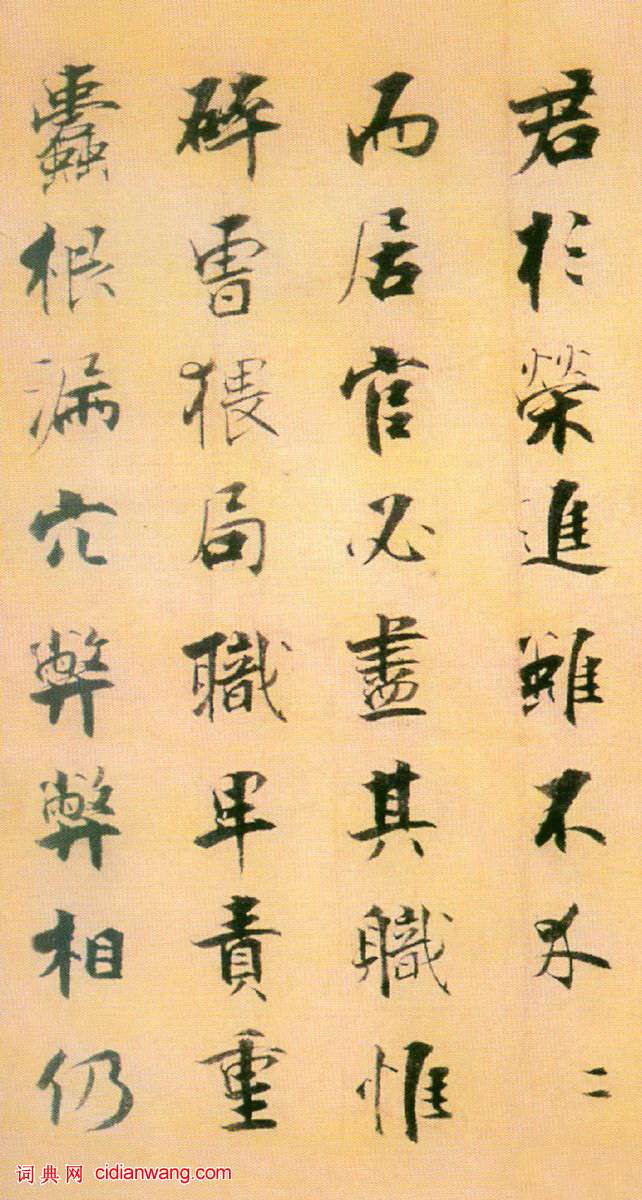 君於榮進雖不
而居官必盡其職惟
碎曹猥局職卑責重
蠹根漏穴弊弊相仍
词典网 cidianwang.com